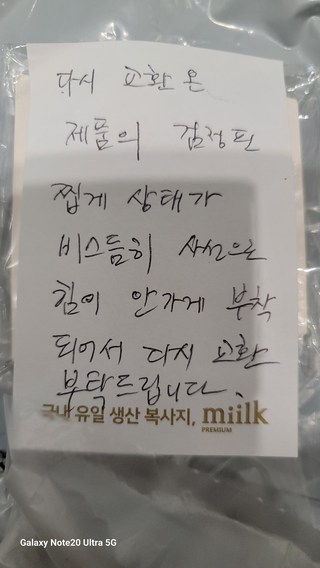 다시 교환 온
제품의 검정판
찝게 상태가
비스듬히 사선으로
힘이 안가게 부착
되어서 다시 교환
부탁드립니다.
국내 유일 생산 복사지, miilk
PREMIUM
Galaxy Note20 Ultra 5G